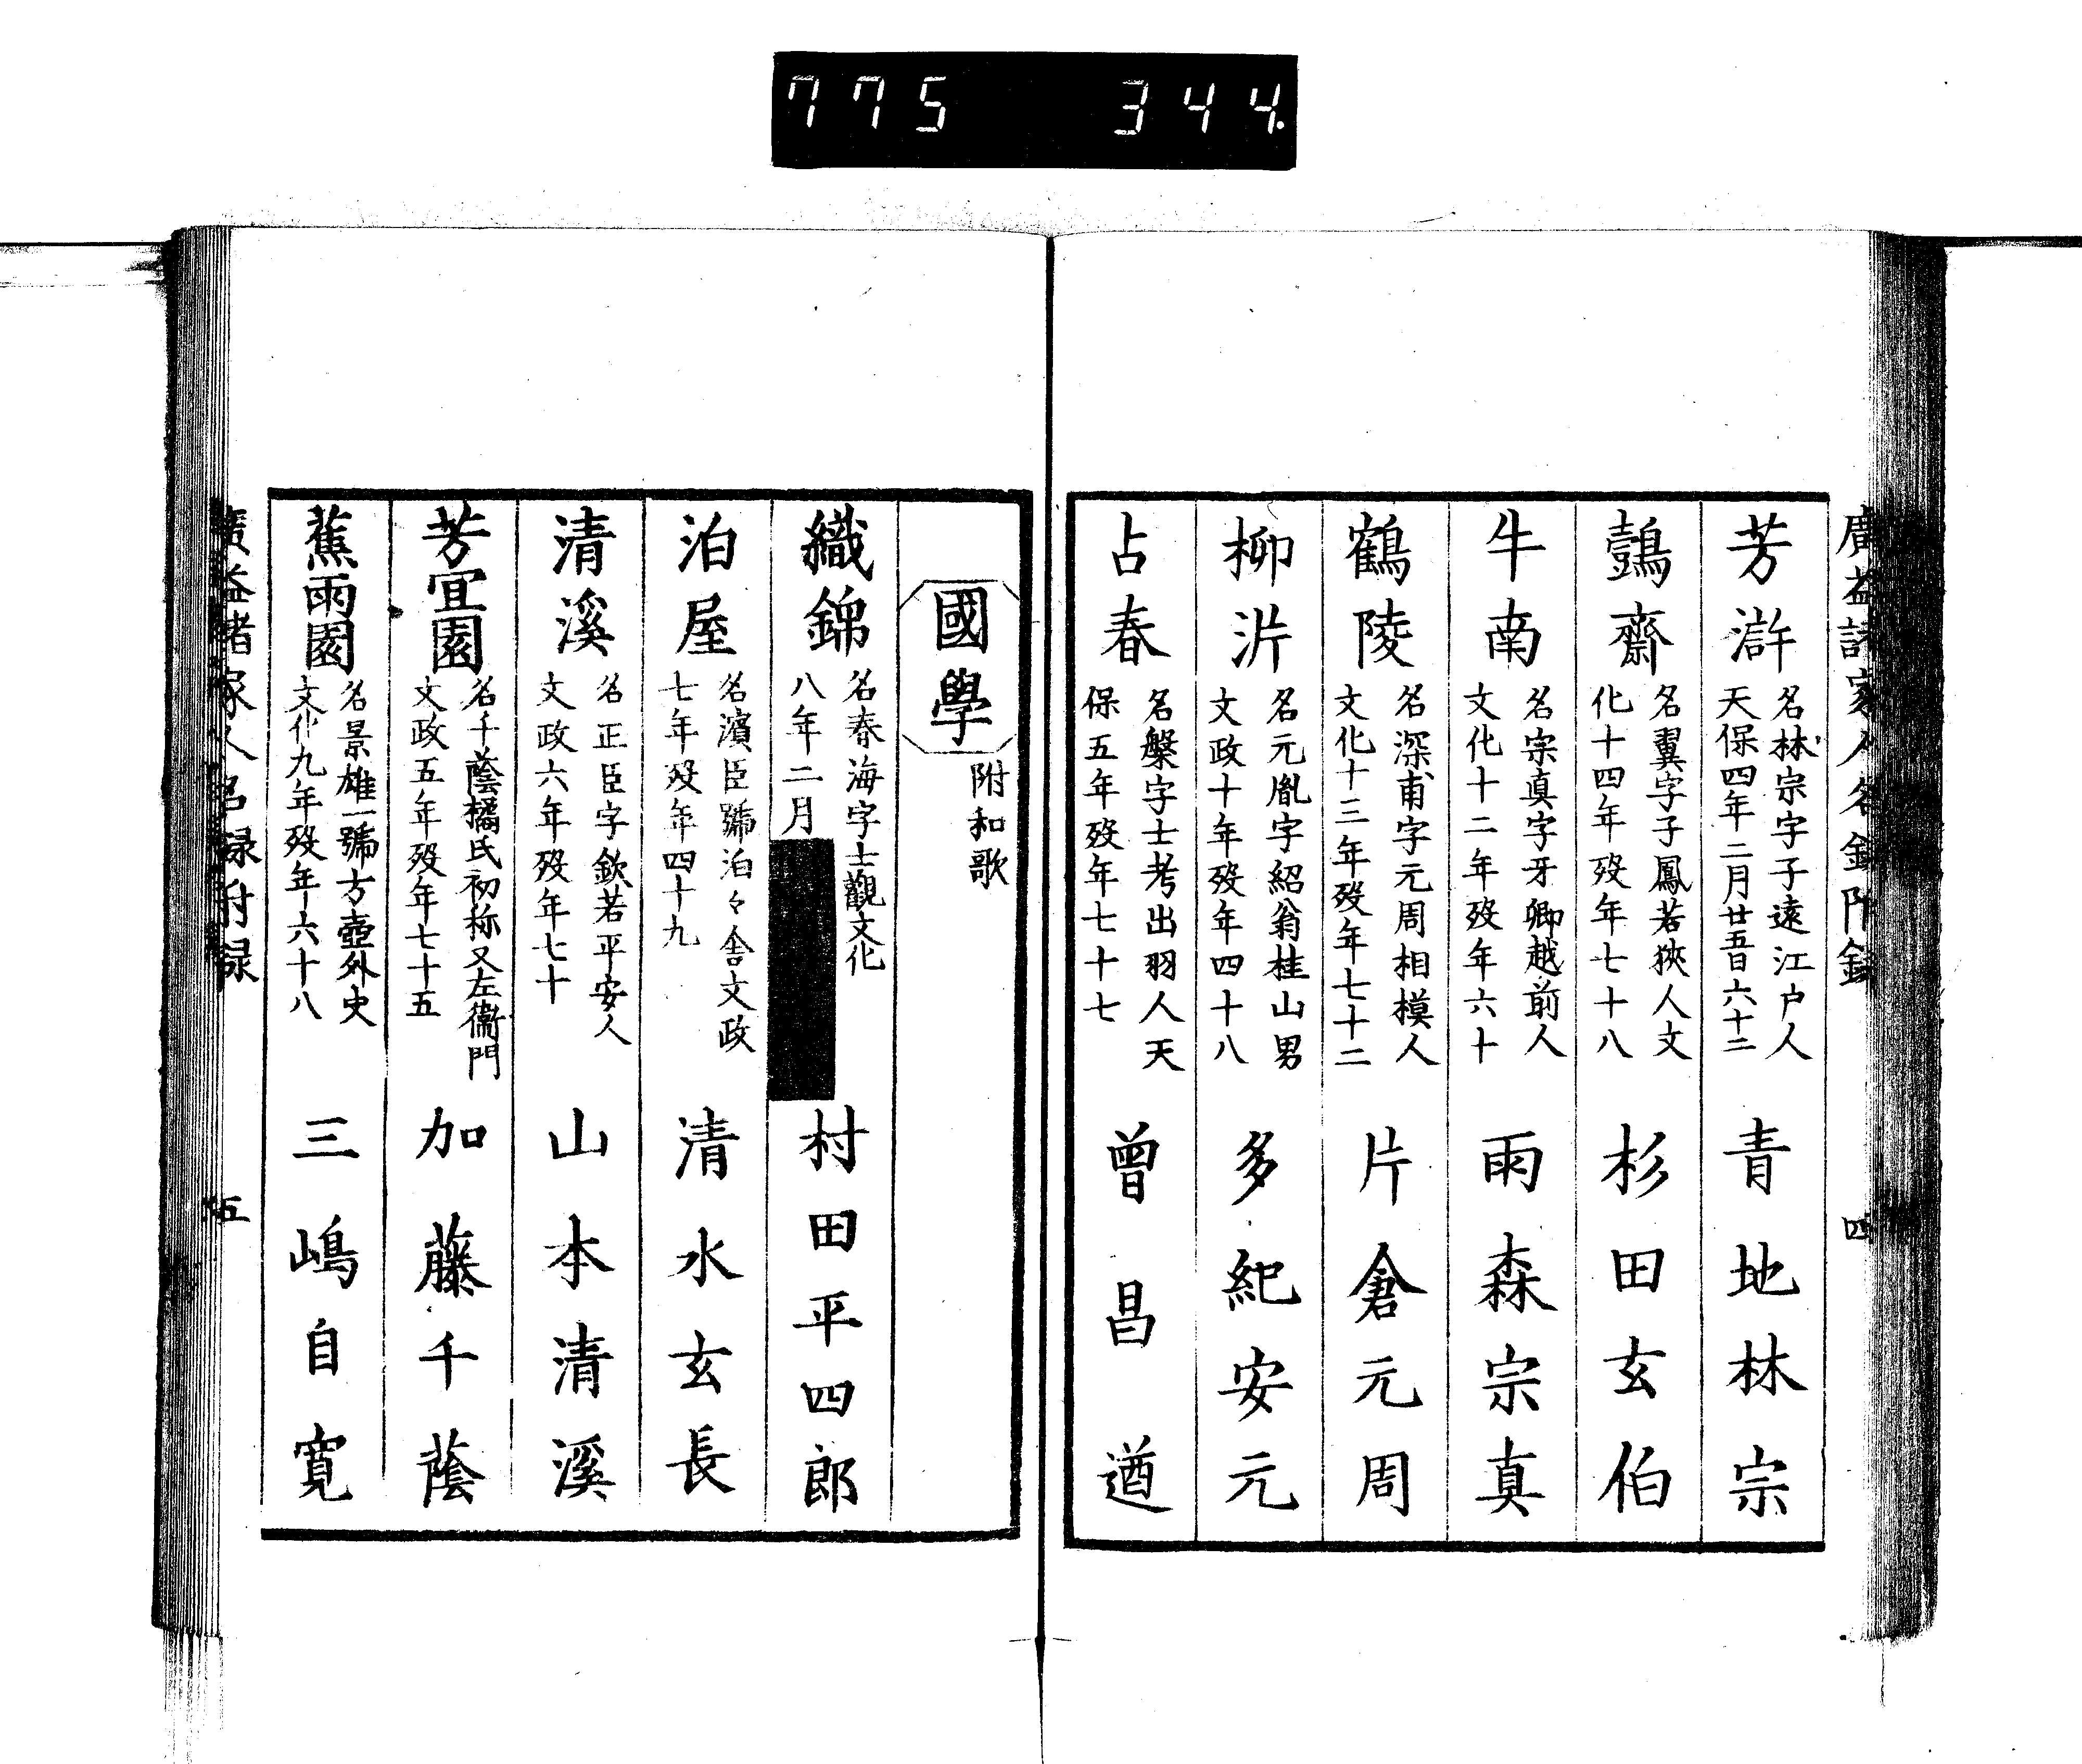 775 344.
廣益諸家人名録附録
四
芳滸
名林宗字子遠江戸人
天保四年二月廿五日六十二
青地林宗
鷧齋
名翼字子鳳若狹人文
化十四年歿年七十八
杉田玄伯
牛南
名宗真字牙卿越前人
文化十二年歿年六十
雨森宗真
鶴陵
名深甫字元周相模人
文化十三年歿年七十二
片倉元周
柳沜
名元胤字紹翁桂山男
文政十年歿年四十八
多紀安元
占春
名槃字士考出羽人天
保五年歿年七十七
曽昌遒
國學
附和歌
織錦
名春海字士觀文化
八年二月
村田平四郎
泊屋
名濱臣號泊々舎文政
七年歿年四十九
清水玄長
清溪
名正臣字欽若平安人
文政六年歿年七十
山本清溪
芳宜園
名千蔭橘氏初称又左衞門
文政五年歿年七十五
加藤千蔭
蕉雨園
名景雄一號方壺外史
文化九年歿年六十八
三嶋自寛
廣益諸家人名録附録
五